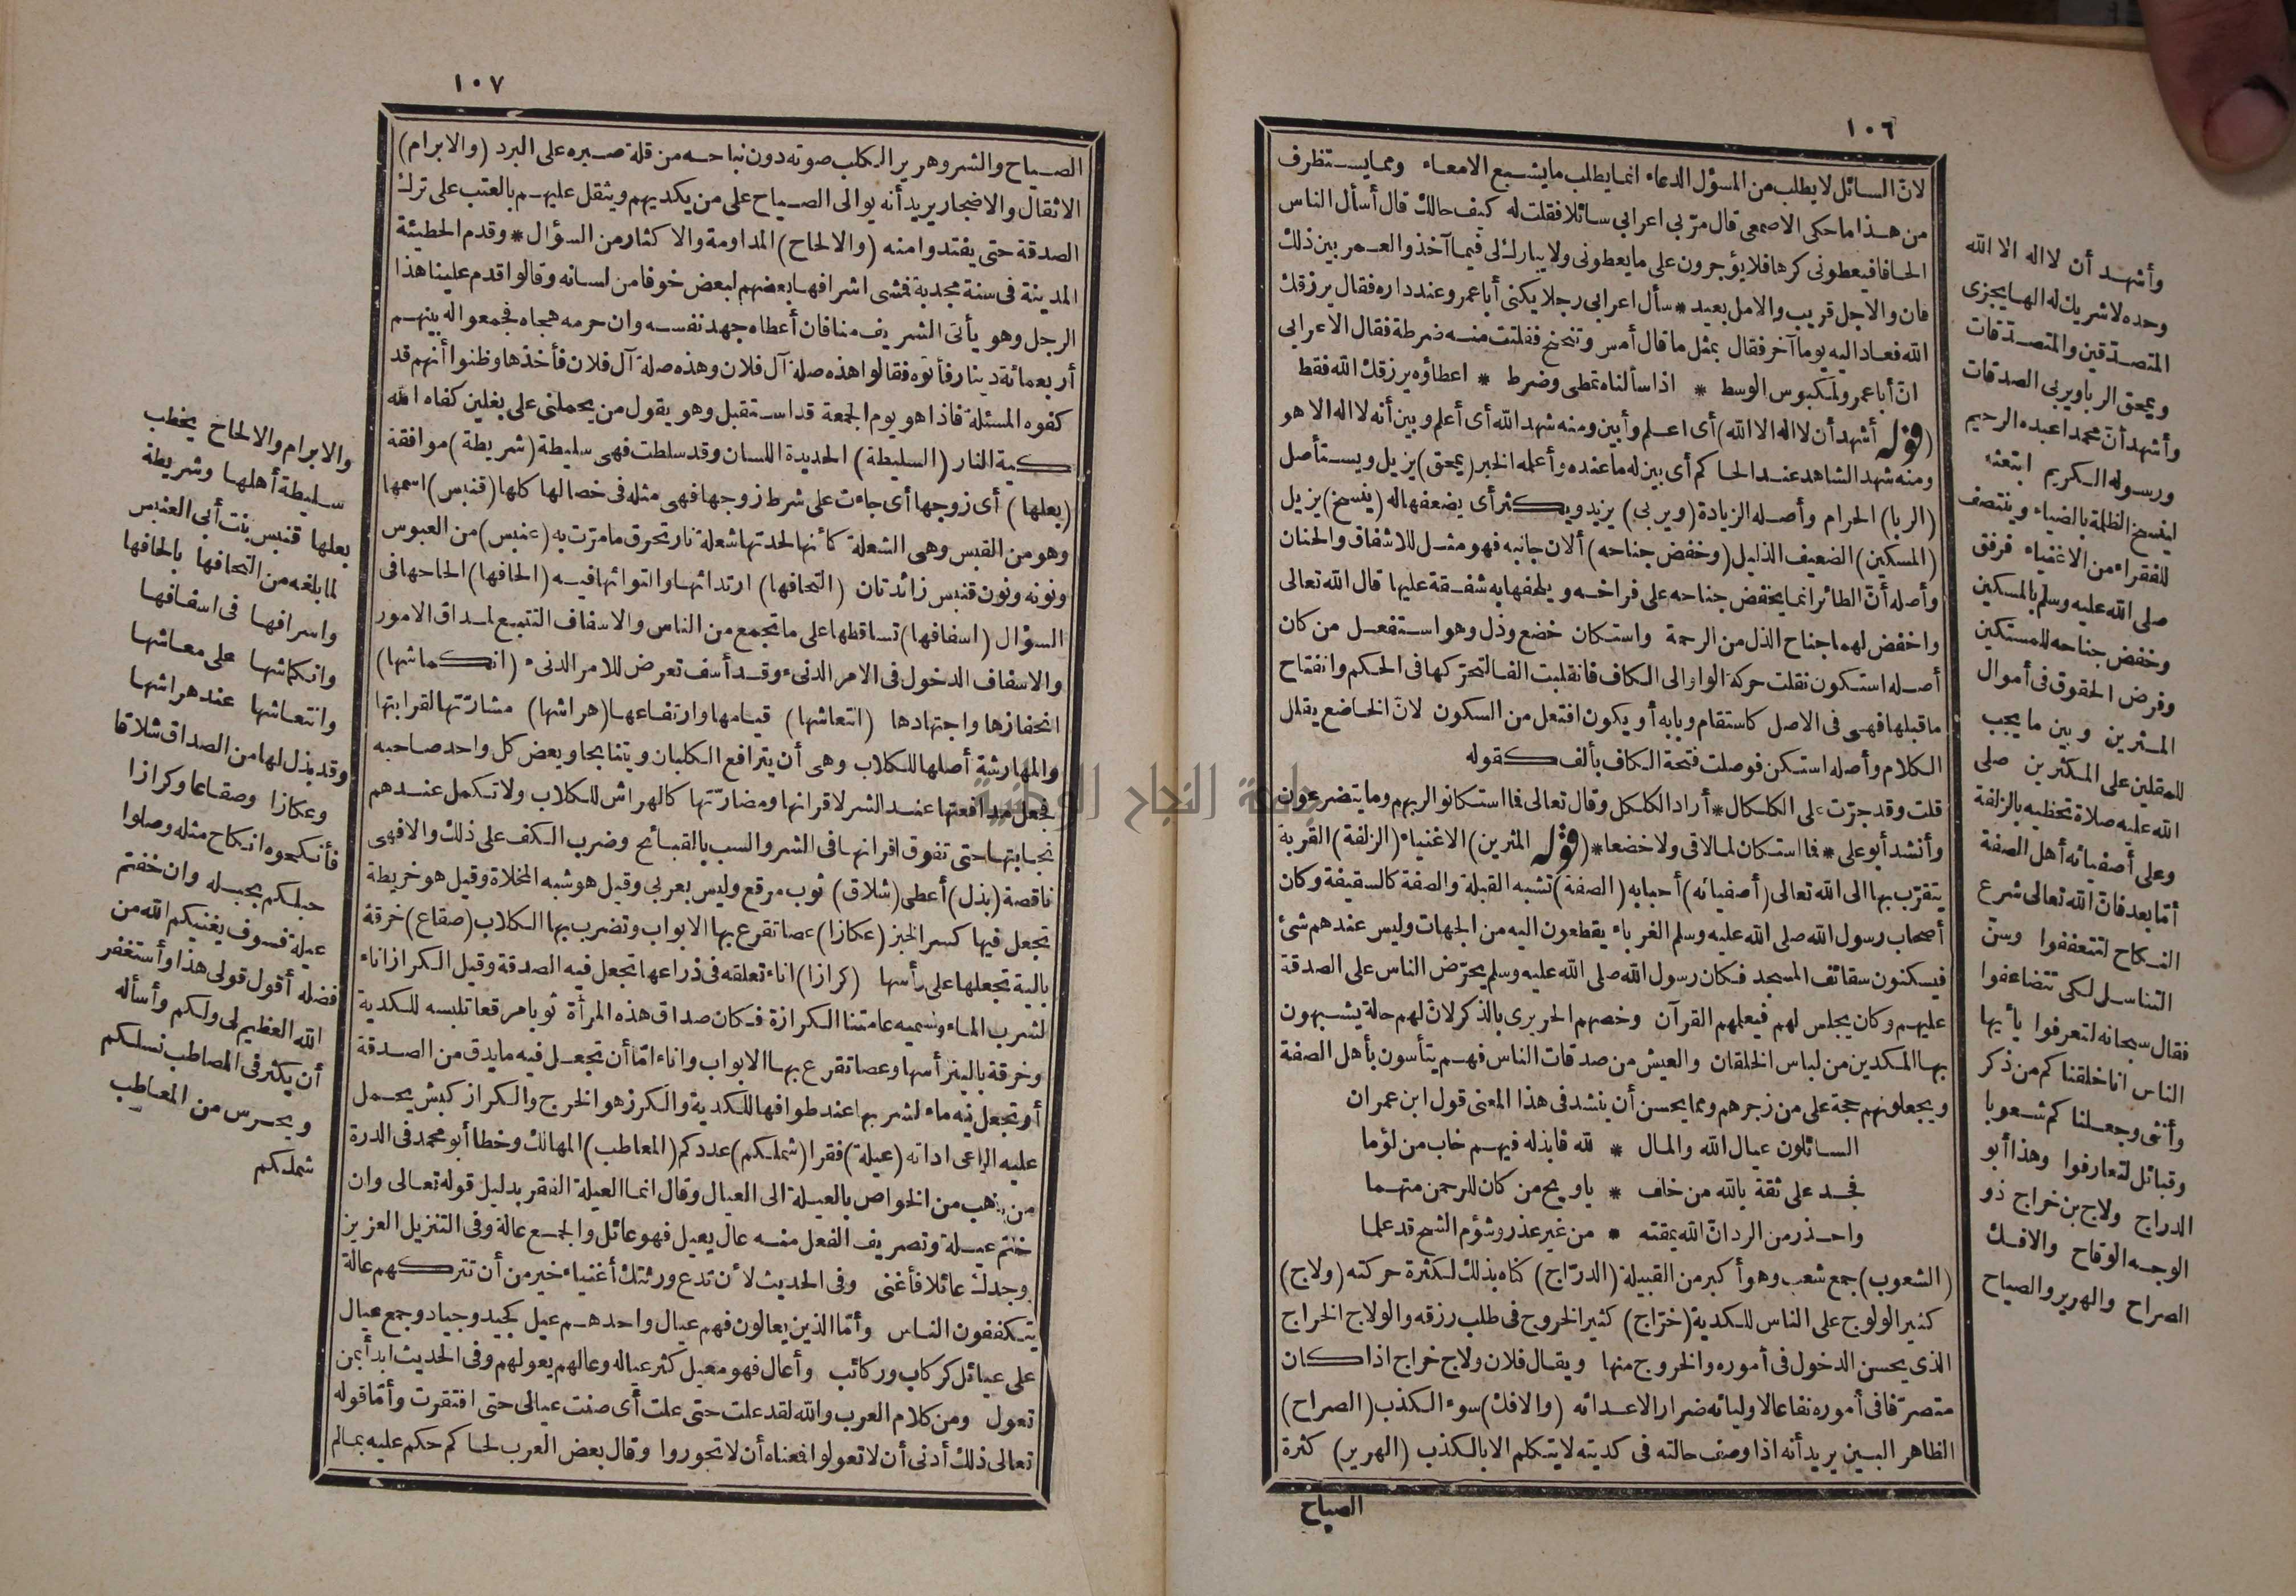 ١٠٦
لان السائل لا يطلب من المسؤل الدعاء انما يطلب ما يشبع الامعاء ومما يستظرف
من هذا ما حكى الاصمعى قال مرّ بى اعرابى سائلا فقلت له كيف حالك قال أسأل الناس
الحافا فيعطونى كرها فلا يؤجرون على ما يعطونى ولا يبارك لى فيما آخذ والعمر بين ذلك
فان والاجل قريب والامل بعيد * سأل اعرابى رجلا يكنى أبا عمرو عند داره فقال يرزقك
الله فعاد اليه يوما آخر فقال بمثل ما قال أمس وتنحنح ففلتت منه ضرطة فقال الاعرابى
انّ أبا عمرو لمكبوس الوسط * اذا سألناه تمطى وضرط * اعطاؤه يرزقك الله فقط
(قوله أشهد أن لا اله الا الله) أى اعلم وأبين ومنه شهد الله أى أعلم وبين أنه لا اله الا هو
ومنه شهد الشاهد عند الحاكم أى بين له ما عنده وأعلمه الخبر (يمحق) يزيل ويستأصل
(الربا) الحرام وأصله الزيادة (ويربى) يزيد ويكثر أى يضعفها له (ينسخ) يزيل
(المسكين) الضعيف الذليل (وخفض جناحه) ألان جانبه فهو مثل للاشفاق والحنان
وأصله أنّ الطائر انما يخفض جناحه على فراخه ويلحفها به شفقة عليها قال الله تعالى
واخفض لهما جناح الذل من الرحمة واستكان خضع وذل وهو استفعل من كان
أصله استكون نقلت حركة الواو الى الكاف فانقلبت الفا لتحرّكها فى الحكم وانفتاح
ما قبلها فهى فى الاصل كاستقام وبابه أو يكون افتعل من السكون لانّ الخاضع يقلل
الكلام وأصله استكن فوصلت فتحة الكاف بألف كقوله
قلت وقد جرّت على الكلكال * أراد الكلكل وقال تعالى فما استكانوا لربهم وما يتضرعون
وأنشد أبو على * فما استكان لما لاقى ولا خضعا * (قوله المثرين) الاغنياء (الزلفة) القربة
يتقرّب بها الى الله تعالى (أصفيائه) أحبابه (الصفة) تشبه القبلة والصفة كالسقيفة وكان
أصحاب رسول الله صلى الله عليه وسلم الغرباء يقطعون اليه من الجهات وليس عندهم شئ
فيسكنون سقائف المسجد فكان رسول الله صلى الله عليه وسلم يحرّض الناس على الصدقة
عليهم وكان يجلس لهم فيعلمهم القرآن وخصهم الحريرى بالذكر لانّ لهم حالة يشبهون
بها المكدين من لباس الخلقان والعيش من صدقات الناس فهم يتأسون بأهل الصفة
ويجعلونهم حجة على من زجرهم ومما يحسن أن ينشد فى هذا المعنى قول ابن عمران
السائلون عيال الله والمال * لله فابذله فيهم خاب من لؤما
فجد على ثقة بالله من خلف * ياويح من كان للرحمن متهما
واحذر من الرد انّ الله يمقته * من غير عذر وشؤم الشح قد علما
(الشعوب) جمع شعب وهو أكبر من القبيلة (الدرّاج) كناه بذلك لكثرة حركته (ولاج)
كثير الولوج على الناس للكدية (خرّاج) كثير الخروج فى طلب رزقه والولاج الخراج
الذى يحسن الدخول فى أموره والخروج منها ويقال فلان ولاج خراج اذا كان
متصرّفا فى أموره نفاعا لاوليائه ضرار الاعدائه (والافك) سوء الكذب (الصراح)
الظاهر البين يريد أنه اذا وصف حالته فى كديته لا يتكلم الا بالكذب (الهرير) كثرة
الصياح
وأشهد أن لا اله الا الله
وحده لا شريك له الها يجزى
المتصدّقين والمتصدّقات
ويمحق الربا ويربى الصدقات
وأشهد أن محمدا عبده الرحيم
ورسوله الكريم ابتعثه
لينسخ الظلمة بالضياء وينتصف
للفقراء من الاغنياء فرفق
صلى الله عليه وسلم بالمسكين
وخفض جناحه للمستكين
وفرض الحقوق فى أموال
المثرين وبين ما يجب
للمقلين على المكثرين صلى
الله عليه صلاة تحظيه بالزلفة
وعلى أصفيائه أهل الصفة
أمّا بعد فانّ الله تعالى شرع
النكاح لتتعففوا وسنّ
التناسل لكى تتضاعفوا
فقال سبحانه لتعرفوا يأيها
الناس انا خلقناكم من ذكر
وأنثى وجعلناكم شعوبا
وقبائل لتعارفوا وهذا أبو
الدراج ولاج بن خراج ذو
الوجه الوقاح والافك
الصراح والهرير والصياح
١٠٧
الصياح والشر وهرير الكلب صوته دون نباحه من قلة صبره على البرد (والابرام)
الاثقال والاضجار يريد أنه يوالى الصياح على من يكديهم ويثقل عليهم بالعتب على ترك
الصدقة حتى يفتدوا منه (والالحاح) المداومة والاكثار من السؤال * وقدم الحطيئة
المدينة فى سنة مجدبة فمشى اشرافها بعضهم لبعض خوفا من لسانه وقالوا قدم علينا هذا
الرجل وهو يأتى الشريف منا فان أعطاه جهد نفسه وان حرمه هجاه فجمعوا له بينهم
أربعمائة دينار فأتوه فقالوا هذه صلة آل فلان وهذه صلة آل فلان فأخذها وظنوا أنهم قد
كفوه المسئلة فاذا هو يوم الجمعة قد استقبل وهو يقول من يحملنى على بغلين كفاه الله
كية النار (السليطة) الحديدة اللسان وقد سلطت فهى سليطة (شريطة) موافقة
(بعلها) أى زوجها أى جاءت على شرط زوجها فهى مثله فى خصالها كلها (قنبس) اسمها
وهو من القبس وهى الشعلة كأنها لحدتها شعلة نار تحرق ما مرّت به (عنبس) من العبوس
ونونه ونون قنبس زائدتان (التحافها) ارتدائها والتوائها فيه (الحافها) الحاحها فى
السؤال (اسفافها) تساقطها على ما تجمع من الناس والاسفاف التتبع لمداق الامور
والاسفاف الدخول فى الامر الدنىء وقد أسف تعرض للامر الدنىء (انكماشها)
انحفازها واجتهادها (انتعاشها) قيامها وارتفاعها (هراشها) مشارّتها لقرابتها
والمهارشة أصلها للكلاب وهى أن يترافع الكلبان ويتنابحا ويعض كل واحد صاحبه
فجعل مدافعتها عند الشر لاقرانها ومضارّتها كالهراش للكلاب ولا تكمل عندهم
نجابتها حتى تفوق اقرانها فى الشر والسب بالقبائح وضرب الكف على ذلك والا فهى
ناقصة (بذل) أعطى (شلاق) ثوب مرقع وليس بعربى وقيل هو شبه المخلاة وقيل هو خريطة
تجعل فيها كسر الخبز (عكازا) عصا تقرع بها الابواب وتضرب بها الكلاب (صقاع) خرقة
بالية تجعلها على رأسها (كرازا) اناء تعلقه فى ذراعها تجعل فيه الصدقة وقيل الكراز اناء
لشرب الماء وتسميه عامتنا الكرازة فكان صداق هذه المرأة ثوبا مرقعا تلبسه للكدية
وخرقة بالية رأسها وعصا تقرع بها الابواب واناء امّا أن تجعل فيه ما يدق من الصدقة
أو تجعل فيه ماء لشربها عند طوافها للكدية والكرز هو الخرج والكراز كبش يحمل
عليه الراعى اداته (عيلة) فقرا (شملكم) عددكم (المعاطب) المهالك وخطأ أبو محمد فى الدرة
من يذهب من الخواص بالعيلة الى العيال وقال انما العيلة الفقر بدليل قوله تعالى وان
خفتم عيلة وتصريف الفعل منه عال يعيل فهو عائل والجمع عالة وفى التنزيل العزيز
ووجدك عائلا فأغنى وفى الحديث لأن تدع ورثتك أغنياء خير من أن تتركهم عالة
يتكففون الناس وأمّا الذين يعالون فهم عيال واحدهم عيل كجيد وجياد وجمع عيال
على عيائل كركاب وركائب وأعال فهو معيل كثر عياله وعالهم يعولهم وفى الحديث ابدأ بمن
تعول ومن كلام العرب والله لقد علت حتى علت أى صنت عيالى حتى افتقرت وأمّا قوله
تعالى ذلك أدنى أن لا تعولوا فمعناه أن لا تجوروا وقال بعض العرب لحاكم حكم عليه بما لم
والابرام والالحاح يخطب
سليطة أهلها وشريطة
بعلها قنبس بنت أبى العنبس
لما بلغه من التحافها بالحافها
واسرافها فى اسفافها
وانكماشها على معاشها
وانتعاشها عند هراشها
وقد بذل لها من الصداق شلاقا
وعكازا وصقاعا وكرازا
فأنكحوه انكاح مثله وصلوا
حبلكم بحبله وان خفتم
عيلة فسوف يغنيكم الله من
فضله أقول قولى هذا وأستغفر
الله العظيم لى ولكم وأسأله
أن يكثر فى المصاطب نسلكم
ويحرس من المعاطب
شملكم
جامعة النجاح الوطنية